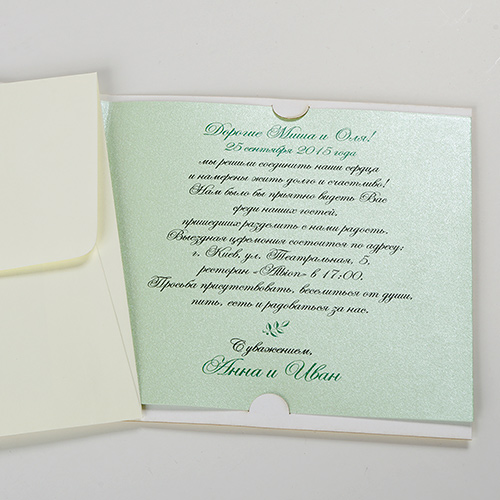 Дорогие Миша и Оля!
25 сентября 2015 года
мы решили соединить наши сердца
и намерены жить долго и счастливо!
Нам было бы приятно видеть Вас
среди наших гостей,
пришедших разделить с нами радость.
Выездная церемония состоится по адресу:
г. Киев, ул. Театральная, 5,
ресторан «Твіоп» в 17:00.
Просьба присутствовать, веселиться от души,
пить, есть и радоваться за нас.
С уважением,
Анна и Иван